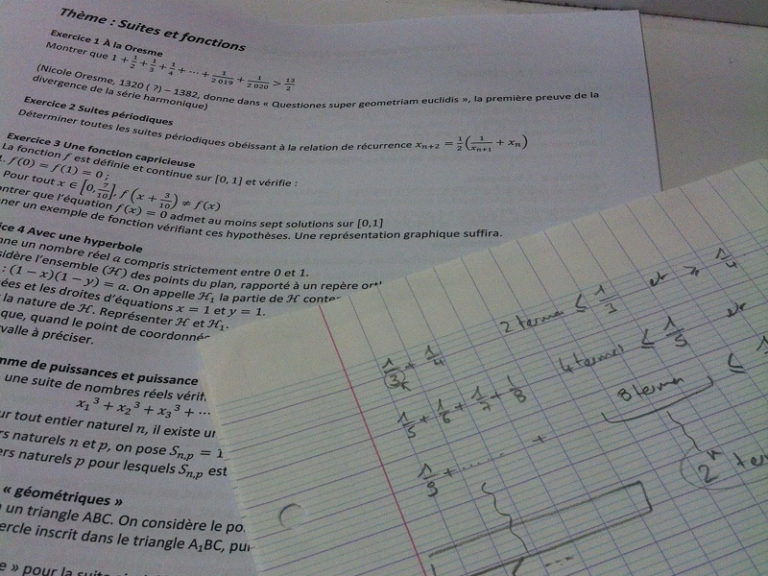 Thème : Suites et fonctions
Exercice 1 À la Oresme
Montrer que 1 + 1/2 + 1/3 + 1/4 + ⋯ + 1/2 019 + 1/2 020 > 13/2
(Nicole Oresme, 1320 ( ?) – 1382, donne dans « Questiones super geometriam euclidis », la première preuve de la
divergence de la série harmonique)
Exercice 2 Suites périodiques
Déterminer toutes les suites périodiques obéissant à la relation de récurrence xₙ₊₂ = 1/2 (1/xₙ₊₁ + xₙ)
Exercice 3 Une fonction capricieuse
La fonction f est définie et continue sur [0, 1] et vérifie :
1. f(0) = f(1) = 0 ;
Pour tout x ∈ [0, 7/10], f(x + 3/10) ≠ f(x)
ntrer que l'équation f(x) = 0 admet au moins sept solutions sur [0,1]
ner un exemple de fonction vérifiant ces hypothèses. Une représentation graphique suffira.
ice 4 Avec une hyperbole
nne un nombre réel a compris strictement entre 0 et 1.
sidère l'ensemble (ℋ) des points du plan, rapporté à un repère ort
: (1 − x)(1 − y) = a. On appelle ℋ₁ la partie de ℋ conte
ées et les droites d'équations x = 1 et y = 1.
la nature de ℋ. Représenter ℋ et ℋ₁.
que, quand le point de coordonné
valle à préciser.
mme de puissances et puissance
une suite de nombres réels vérif
x₁³ + x₂³ + x₃³ + ⋯
ur tout entier naturel n, il existe un
rs naturels n et p, on pose Sₙ,ₚ = 1
ers naturels p pour lesquels Sₙ,ₚ est
« géométriques »
un triangle ABC. On considère le po
ercle inscrit dans le triangle A₁BC, pui
e » pour la suite
1/3 + 1/4 2 termes ≤ 1/3 et ≥ 1/4
1/5 + 1/6 + 1/7 + 1/8 4 termes ≤ 1/5 et
1/9 + ...... + 8 termes ≤ 1
2ᵏ ter
...